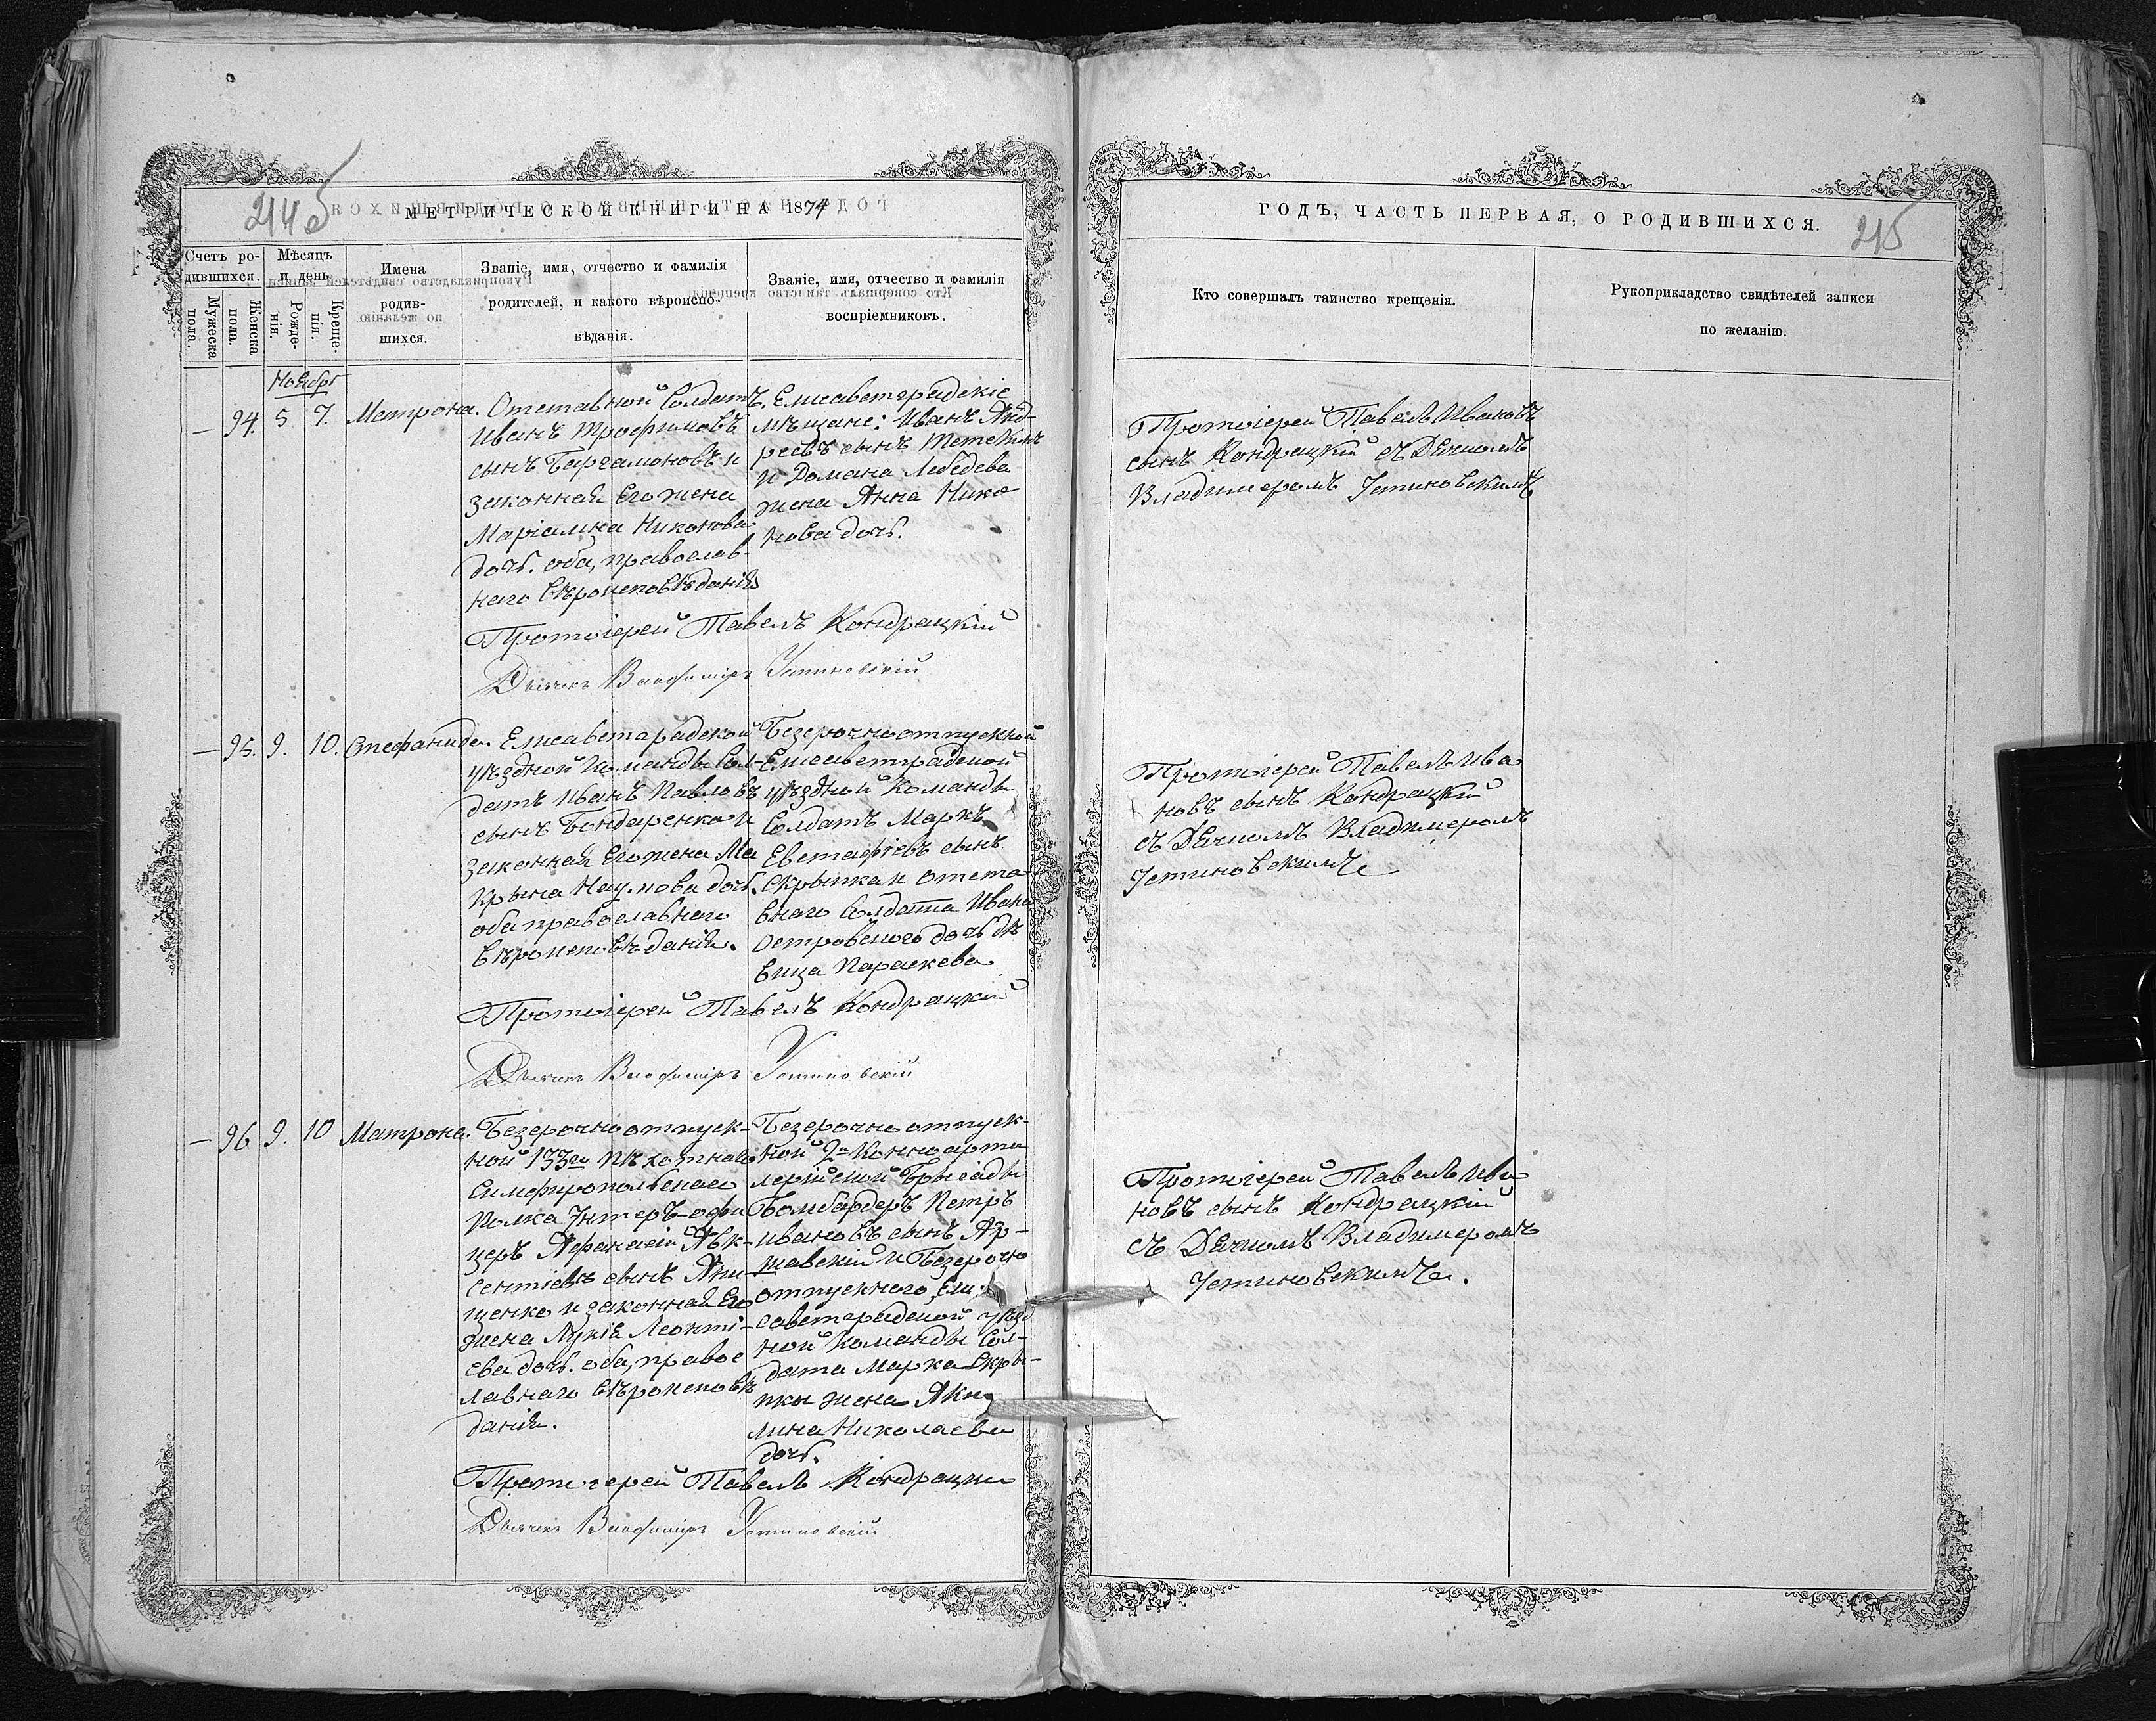 214 об
МЕТРИЧЕСКОЙ КНИГИ НА 1874
Счетъ ро-
дившихся.
Мужеска
пола.
Женска
пола.
Мѣсяцъ
и день
Рожде-
нія.
Креще-
нія.
Имена
родив-
шихся.
Званіе, имя, отчество и фамилія
родителей, и какого вѣроиспо-
вѣданія.
Званіе, имя, отчество и фамилія
воспріемниковъ.
Ноября
— 94. 5 7. Матрона.
Отставной Солдатъ
Иванъ Трофимовъ
сынъ Баргамоновъ и
законная его жена
Маріамна Никонова
дочь. оба, православ-
наго вѣроисповѣданія
Елисаветградскіе
мѣщане: Иванъ Анд-
реевъ сынъ
и Романа Лебедева
жена Анна Нико
нова дочь.
Протоіерей Павелъ Кондрацкій
Дьячекъ Владиміръ Устиновскій
— 95. 9. 10. Стефанида.
Елисаветградской
уѣздной команды Сол-
датъ Иванъ Павловъ
сынъ Бондаренко и
законная его жена Ма
крина Наумова дочь.
оба православнаго
вѣроисповѣданія.
Безсрочноотпускной
Елисаветградской
уѣздной команды
Солдатъ Маркъ
Евстафіевъ сынъ
Скрыпка и отста
внаго Солдата Ивана
Островского дочь дѣ
вица Параскева
Протоіерей Павелъ Кондрацкій
Дьячекъ Владиміръ Устиновскій
— 96 9. 10 Матрона.
Безсрочноотпуск-
ной 133го пѣхотнаго
Симферопольскаго
полка Унтеръ-офи
церъ Афанасій Авк-
сентіевъ сынъ Они-
щенко и законная его
жена Лукія Леонті-
ева дочь. оба, правос
лавнаго вѣроисповѣ
данія.
Безсрочноотпуск-
ной 2й Конноарти
лерійской Бригады
Бомбардеръ Петръ
Ивановъ сынъ Ар-
шавскій и Безсрочно
отпускного Ели-
саветградской уѣзд
ной команды Сол-
дата Марка Скры-
пки жена Аки
лина Николаева
дочь.
Протоіерей Павелъ Кондрацкій
Дьячекъ Владиміръ Устиновскій
ГОДЪ, ЧАСТЬ ПЕРВАЯ, О РОДИВШИХСЯ.
215
Кто совершалъ таинство крещенія.
Рукоприкладство свидѣтелей записи
по желанію.
Протоіерей Павелъ Ивановъ
сынъ Кондрацкій съ Дячкомъ
Владимеромъ Устиновскимъ
Протоіерей Павелъ Ива
новъ сынъ Кондрацкій
съ Дячкомъ Владимеромъ
Устиновскимъ
Протоіерей Павелъ Ива
новъ сынъ Кондрацкій
съ Дячкомъ Владимеромъ
Устиновскимъ.